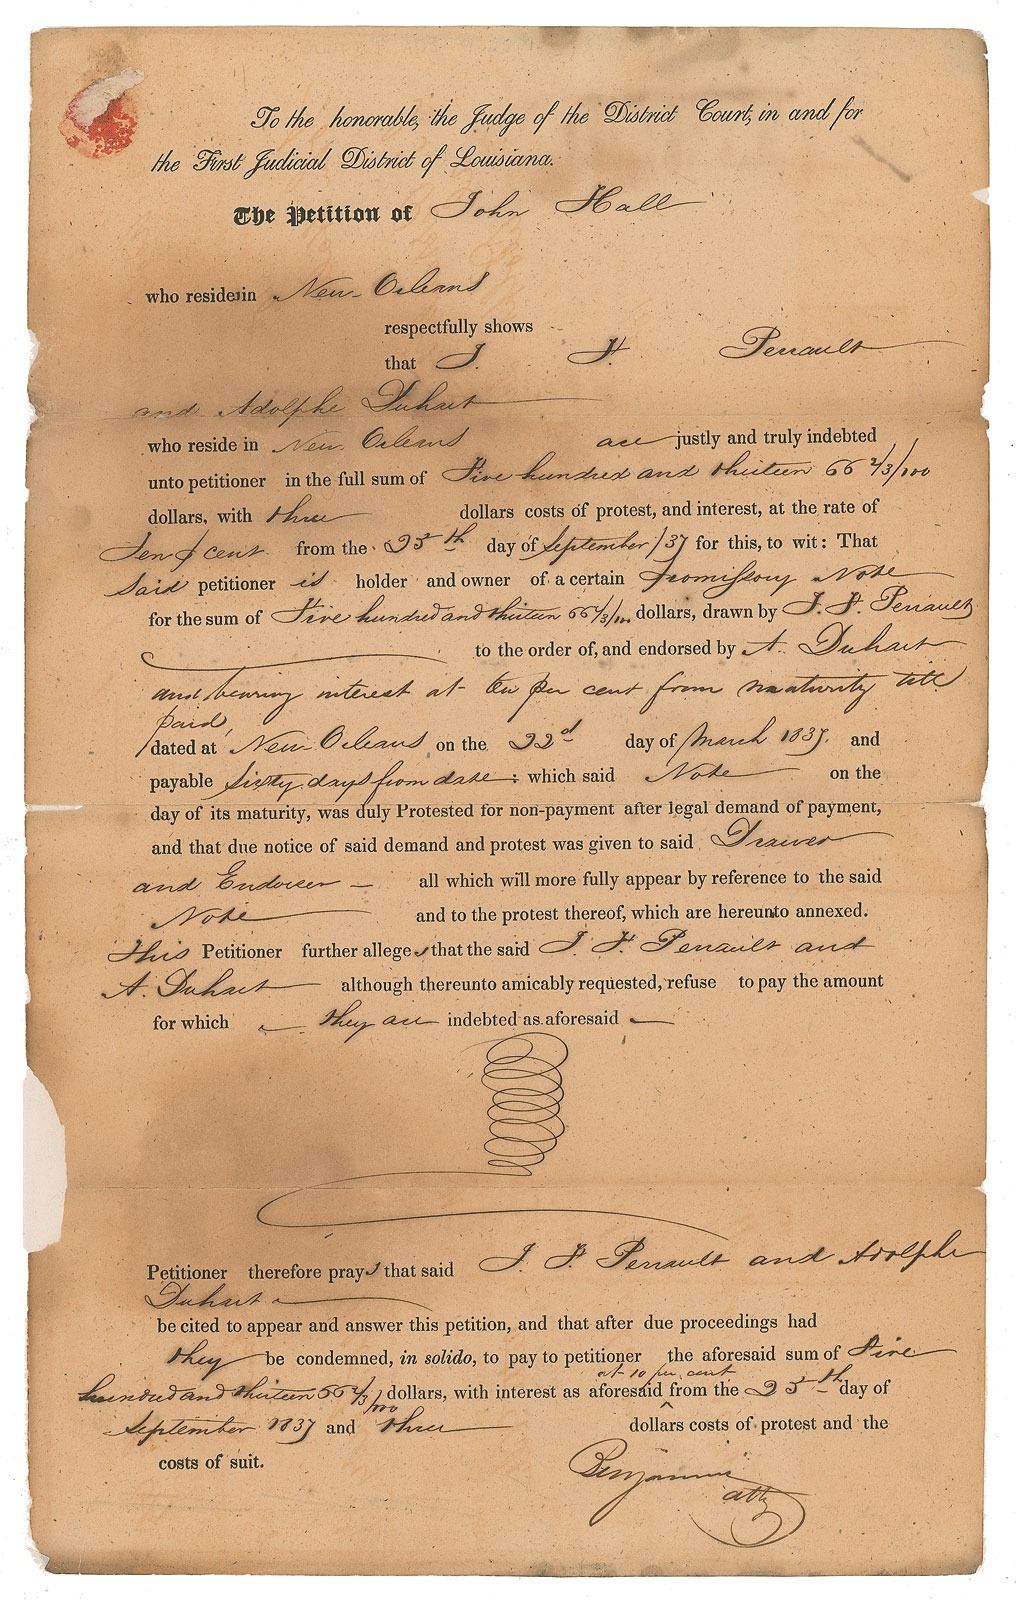 To the honorable, the Judge of the District Court, in and for
the First Judicial District of Louisiana.
The Petition of John Hall
who resides in New Orleans
respectfully shows
that J. F. Perrault
and Adolphe Duhart
who reside in New Orleans are justly and truly indebted
unto petitioner in the full sum of Five hundred and thirteen 66 2/3/100
dollars, with three dollars costs of protest, and interest, at the rate of
Ten p cent from the 25th day of September /37 for this, to wit: That
said petitioner is holder and owner of a certain promissory Note
for the sum of Five hundred and thirteen 66 2/3/100 dollars, drawn by J. F. Perrault
to the order of, and endorsed by A. Duhart
and bearing interest at ten per cent from maturity till
paid,
dated at New Orleans on the 22d day of March 1837. and
payable sixty days from date: which said Note on the
day of its maturity, was duly Protested for non-payment after legal demand of payment,
and that due notice of said demand and protest was given to said Drawer
and Endorser all which will more fully appear by reference to the said
Note and to the protest thereof, which are hereunto annexed.
This Petitioner further alleges that the said J. F. Perrault and
A. Duhart although thereunto amicably requested, refuse to pay the amount
for which they are indebted as aforesaid
Petitioner therefore prays that said J. F. Perrault and Adolphe
Duhart
be cited to appear and answer this petition, and that after due proceedings had
they be condemned, in solido, to pay to petitioner the aforesaid sum of Five
at 10 per cent
hundred and thirteen 66 2/3/100 dollars, with interest as aforesaid from the 25th day of
September 1837 and three dollars costs of protest and the
costs of suit.
Benjamin
atty